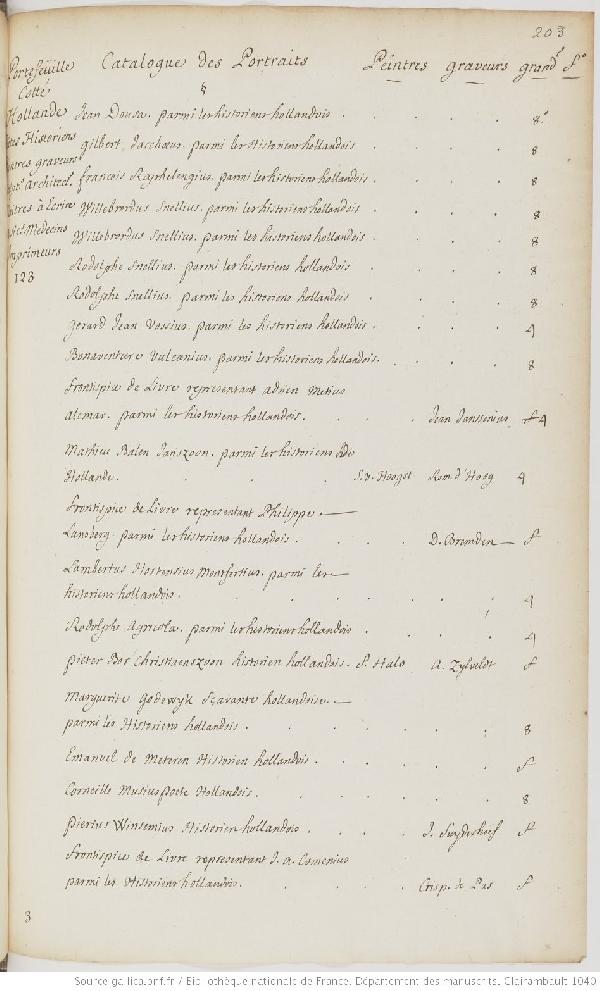 203
Portefeuille Catalogue des Portraits Peintres graveurs grand.r f.o
Cotté
Hollande
Historiens
graveurs
Architect.
à Ecrire
Medecins
Imprimeurs
123
§
Jean Dousa. parmi les historiens hollandois . 8.o
gilbert Jacchœus. parmi les Historiens hollandois 8
francois Raphelengius. parmi les historiens hollandois. 8
Willebrordus Snellius. parmi les historiens hollandois 8
Willebrordus Snellius. parmi les historiens hollandois 8
Rodolphe Snellius. parmi les historiens hollandois 8
Rodolphe Snellius. parmi les historiens hollandois 8
gerard Jean Vossius. parmi les historiens hollandois. 4
Bonaventure Vulcanius. parmi les historiens hollandois. 8
frontispice de Livre representant adrien Metius
alcmar. parmi les historiens hollandois. Jean Janssenius 4
Mathias Balen Janszoon. parmi les historiens de
Hollande. S. v. Hooget Rom d'Hoog 4
frontispice de Livre representant Philippe —
Lansberg. parmi les historiens hollandois. D. Bremden — f
Lambertus Hortensius Montfortius. parmi les —
historiens hollandois. 4
Rodolphe Agricola. parmi les historiens hollandois 4
pieter Bor Christiaenszoon historien hollandois. f. Hals A. Zylveldt f
Marguerite Godewyk Sçavante hollandoise. —
parmi les Historiens hollandois. 8
Emanuel de Meteren Historien hollandois. f
Corneille Musius poete Hollandois. 8
Piertus Winsemius Historien hollandois . J. Suyderhoef f
frontispice de Livre representant J. A. Comenius
parmi les Historiens hollandois. Crisp. de Pas f
3
Source gallica.bnf.fr / Bibliothèque nationale de France. Département des manuscrits. Clairambault 1040